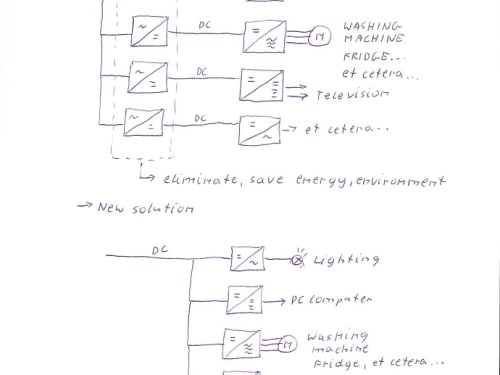 DC
WASHING
MACHINE
FRIDGE...
et cetera...
M
DC
Television
DC
et cetera...
eliminate, save energy, environment
New solution
DC
Lighting
PC Computer
M
Washing
machine
Fridge, et cetera...